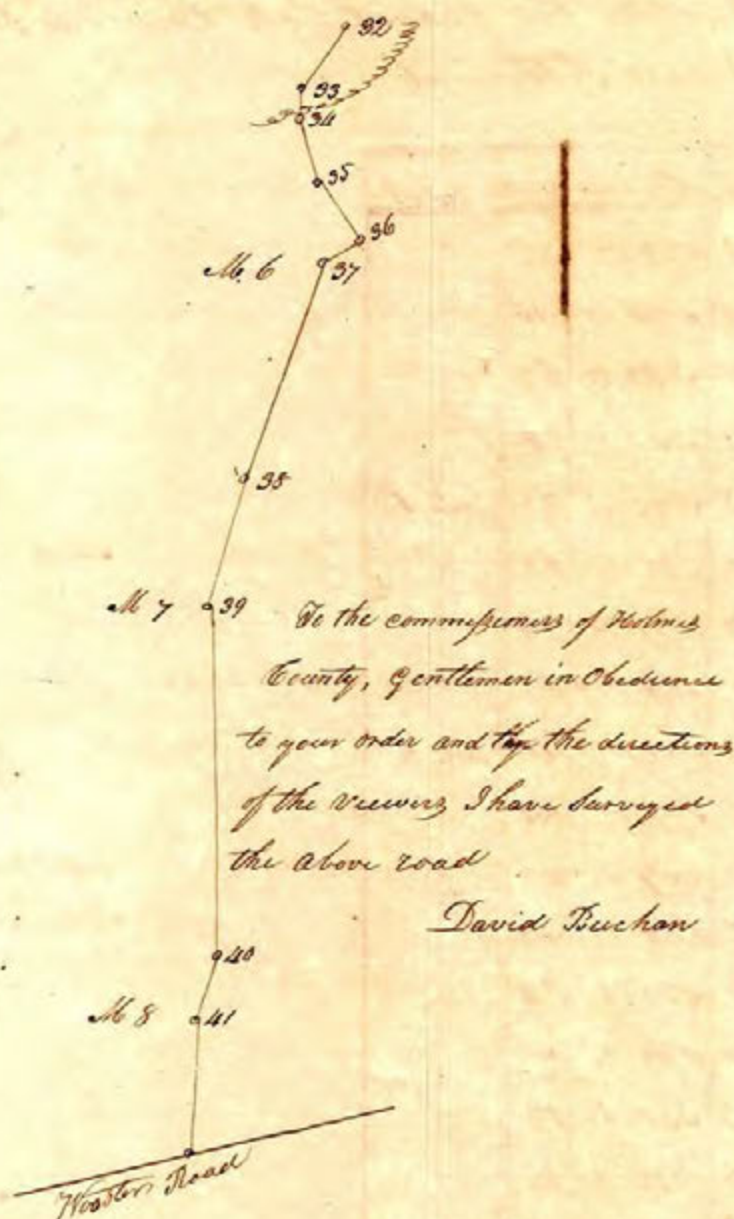 32
33
34
35
36
M. 6 37
38
M 7 39
To the commissioners of Holmes
County, Gentlemen in Obedience
to your order and the directions
of the viewers I have Surveyed
the above road
David Buchan
40
M 8 41
Wooster Road